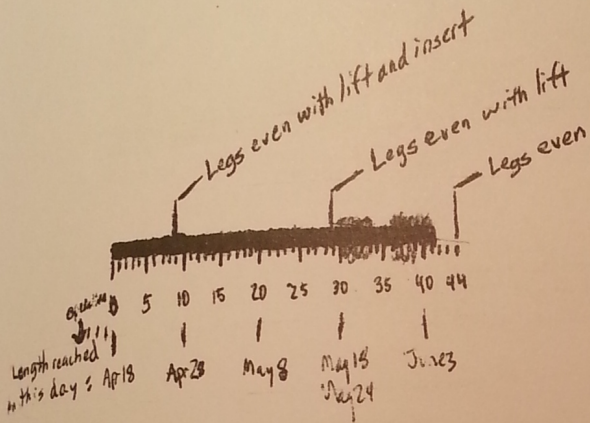 Legs even with lift and insert
Legs even with lift
Legs even
0 5 10 15 20 25 30 35 40 44
Length reached
on this day: Apr 18 Apr 28 May 8 May 18 June 3
May 24